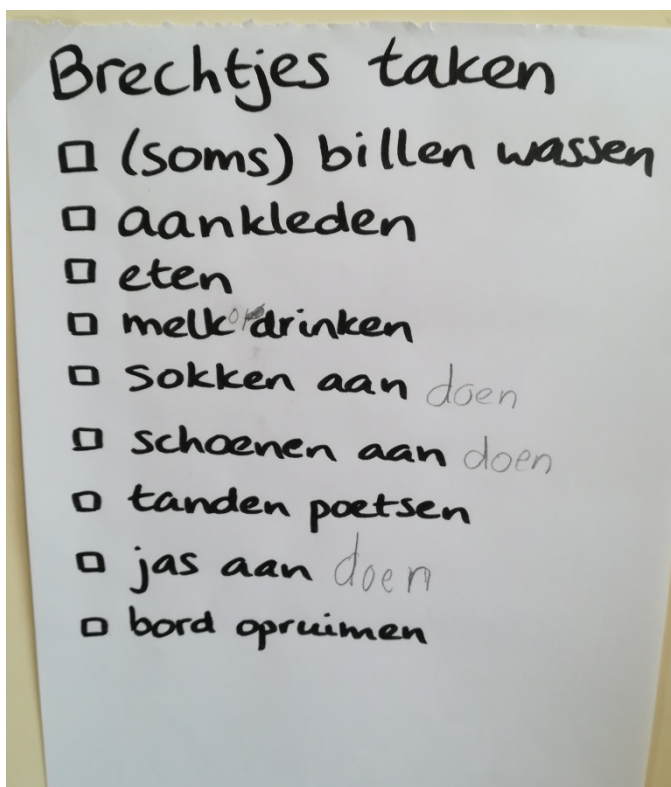 Brechtjes taken
□ (soms) billen wassen
□ aankleden
□ eten
□ melk op drinken
□ sokken aan doen
□ schoenen aan doen
□ tanden poetsen
□ jas aan doen
□ bord opruimen